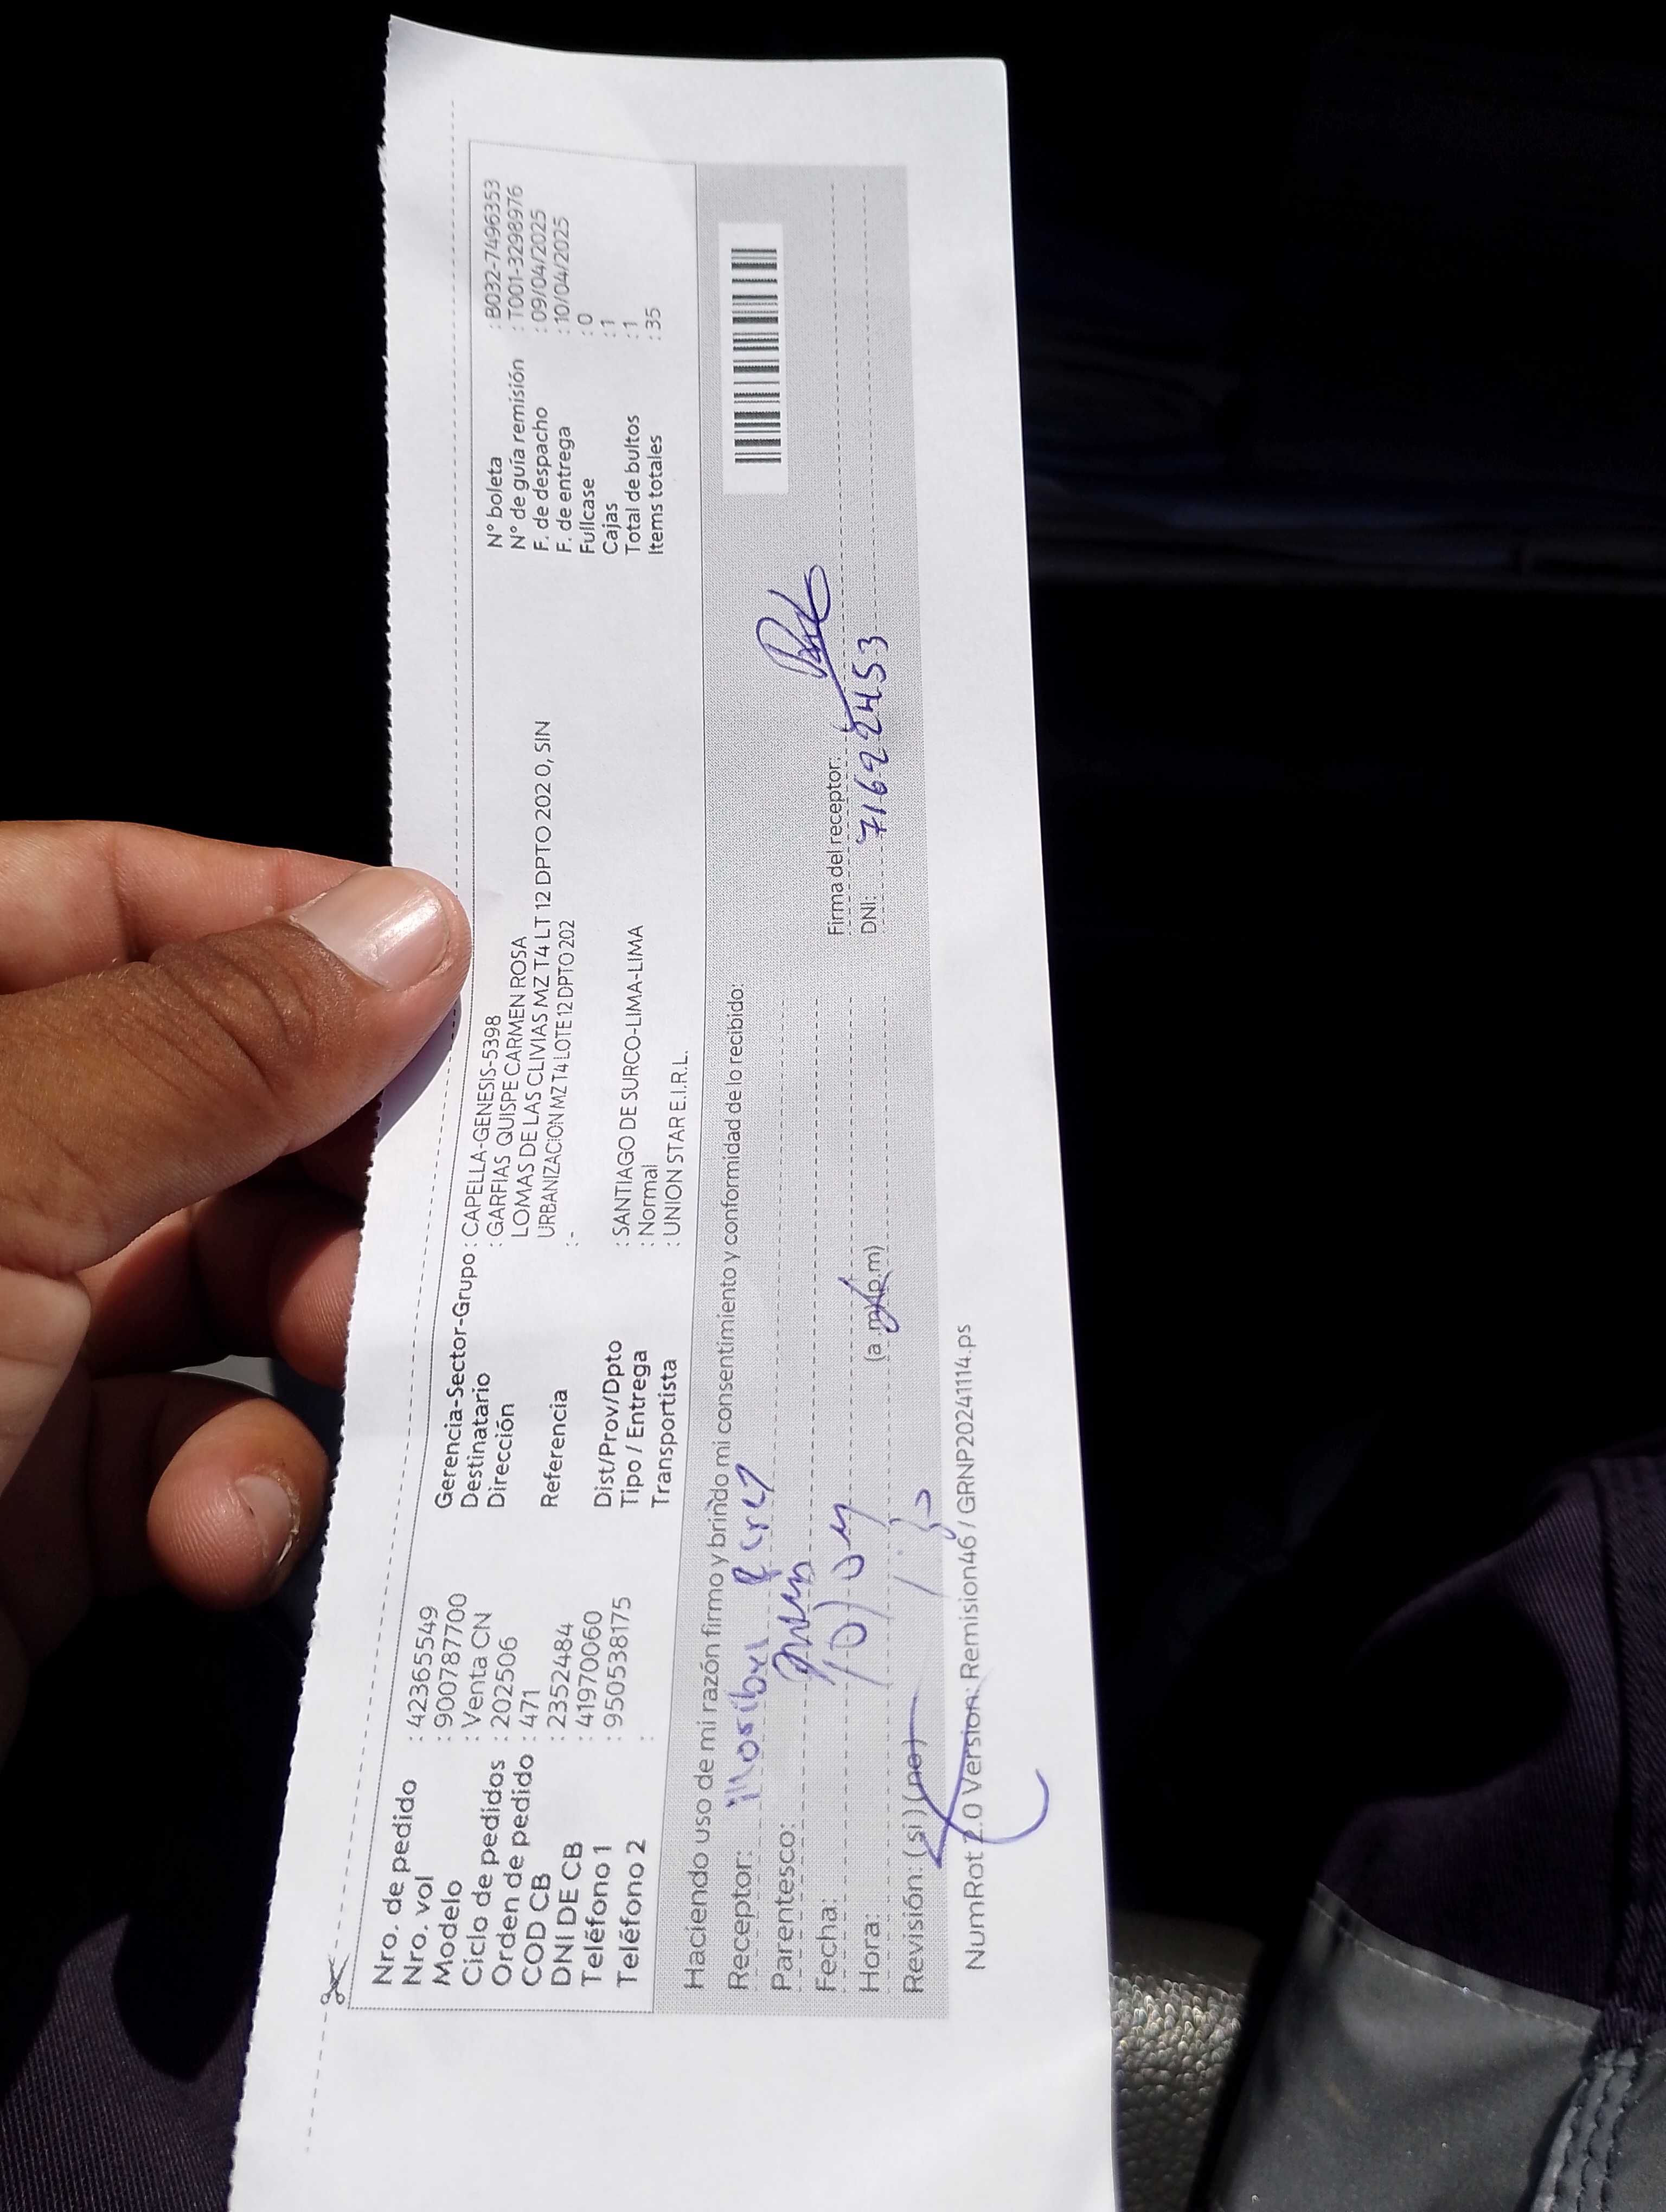 Nro. de pedido : 42365549
Nro. vol : 9007877700
Modelo : Venta CN
Ciclo de pedidos : 202506
Orden de pedido : 471
COD CB : 2352484
DNI DE CB : 41970060
Teléfono 1 : 950538175
Teléfono 2 :
Gerencia-Sector-Grupo : CAPELLA-GENESIS-5398
Destinatario : GARFIAS QUISPE CARMEN ROSA
Dirección LOMAS DE LAS CLIVIAS MZ T4 LT 12 DPTO 202 0, SIN
URBANIZACION MZ T4 LOTE 12 DPTO 202
Referencia : -
Dist/Prov/Dpto : SANTIAGO DE SURCO-LIMA-LIMA
Tipo / Entrega : Normal
Transportista : UNION STAR E.I.R.L.
N° boleta : B032-7496353
N° de guía remisión : T001-3298976
F. de despacho : 09/04/2025
F. de entrega : 10/04/2025
Fullcase : 0
Cajas : 1
Total de bultos : 1
Items totales : 35
Haciendo uso de mi razón firmo y brindo mi consentimiento y conformidad de lo recibido:
Receptor:
Parentesco:
Fecha: 10/04
Hora: (a.m)(p.m)
Revisión: (si) (no)
Firma del receptor:
DNI: 71692453
NumRot 2.0 Version: Remision46 / GRNP20241114.ps